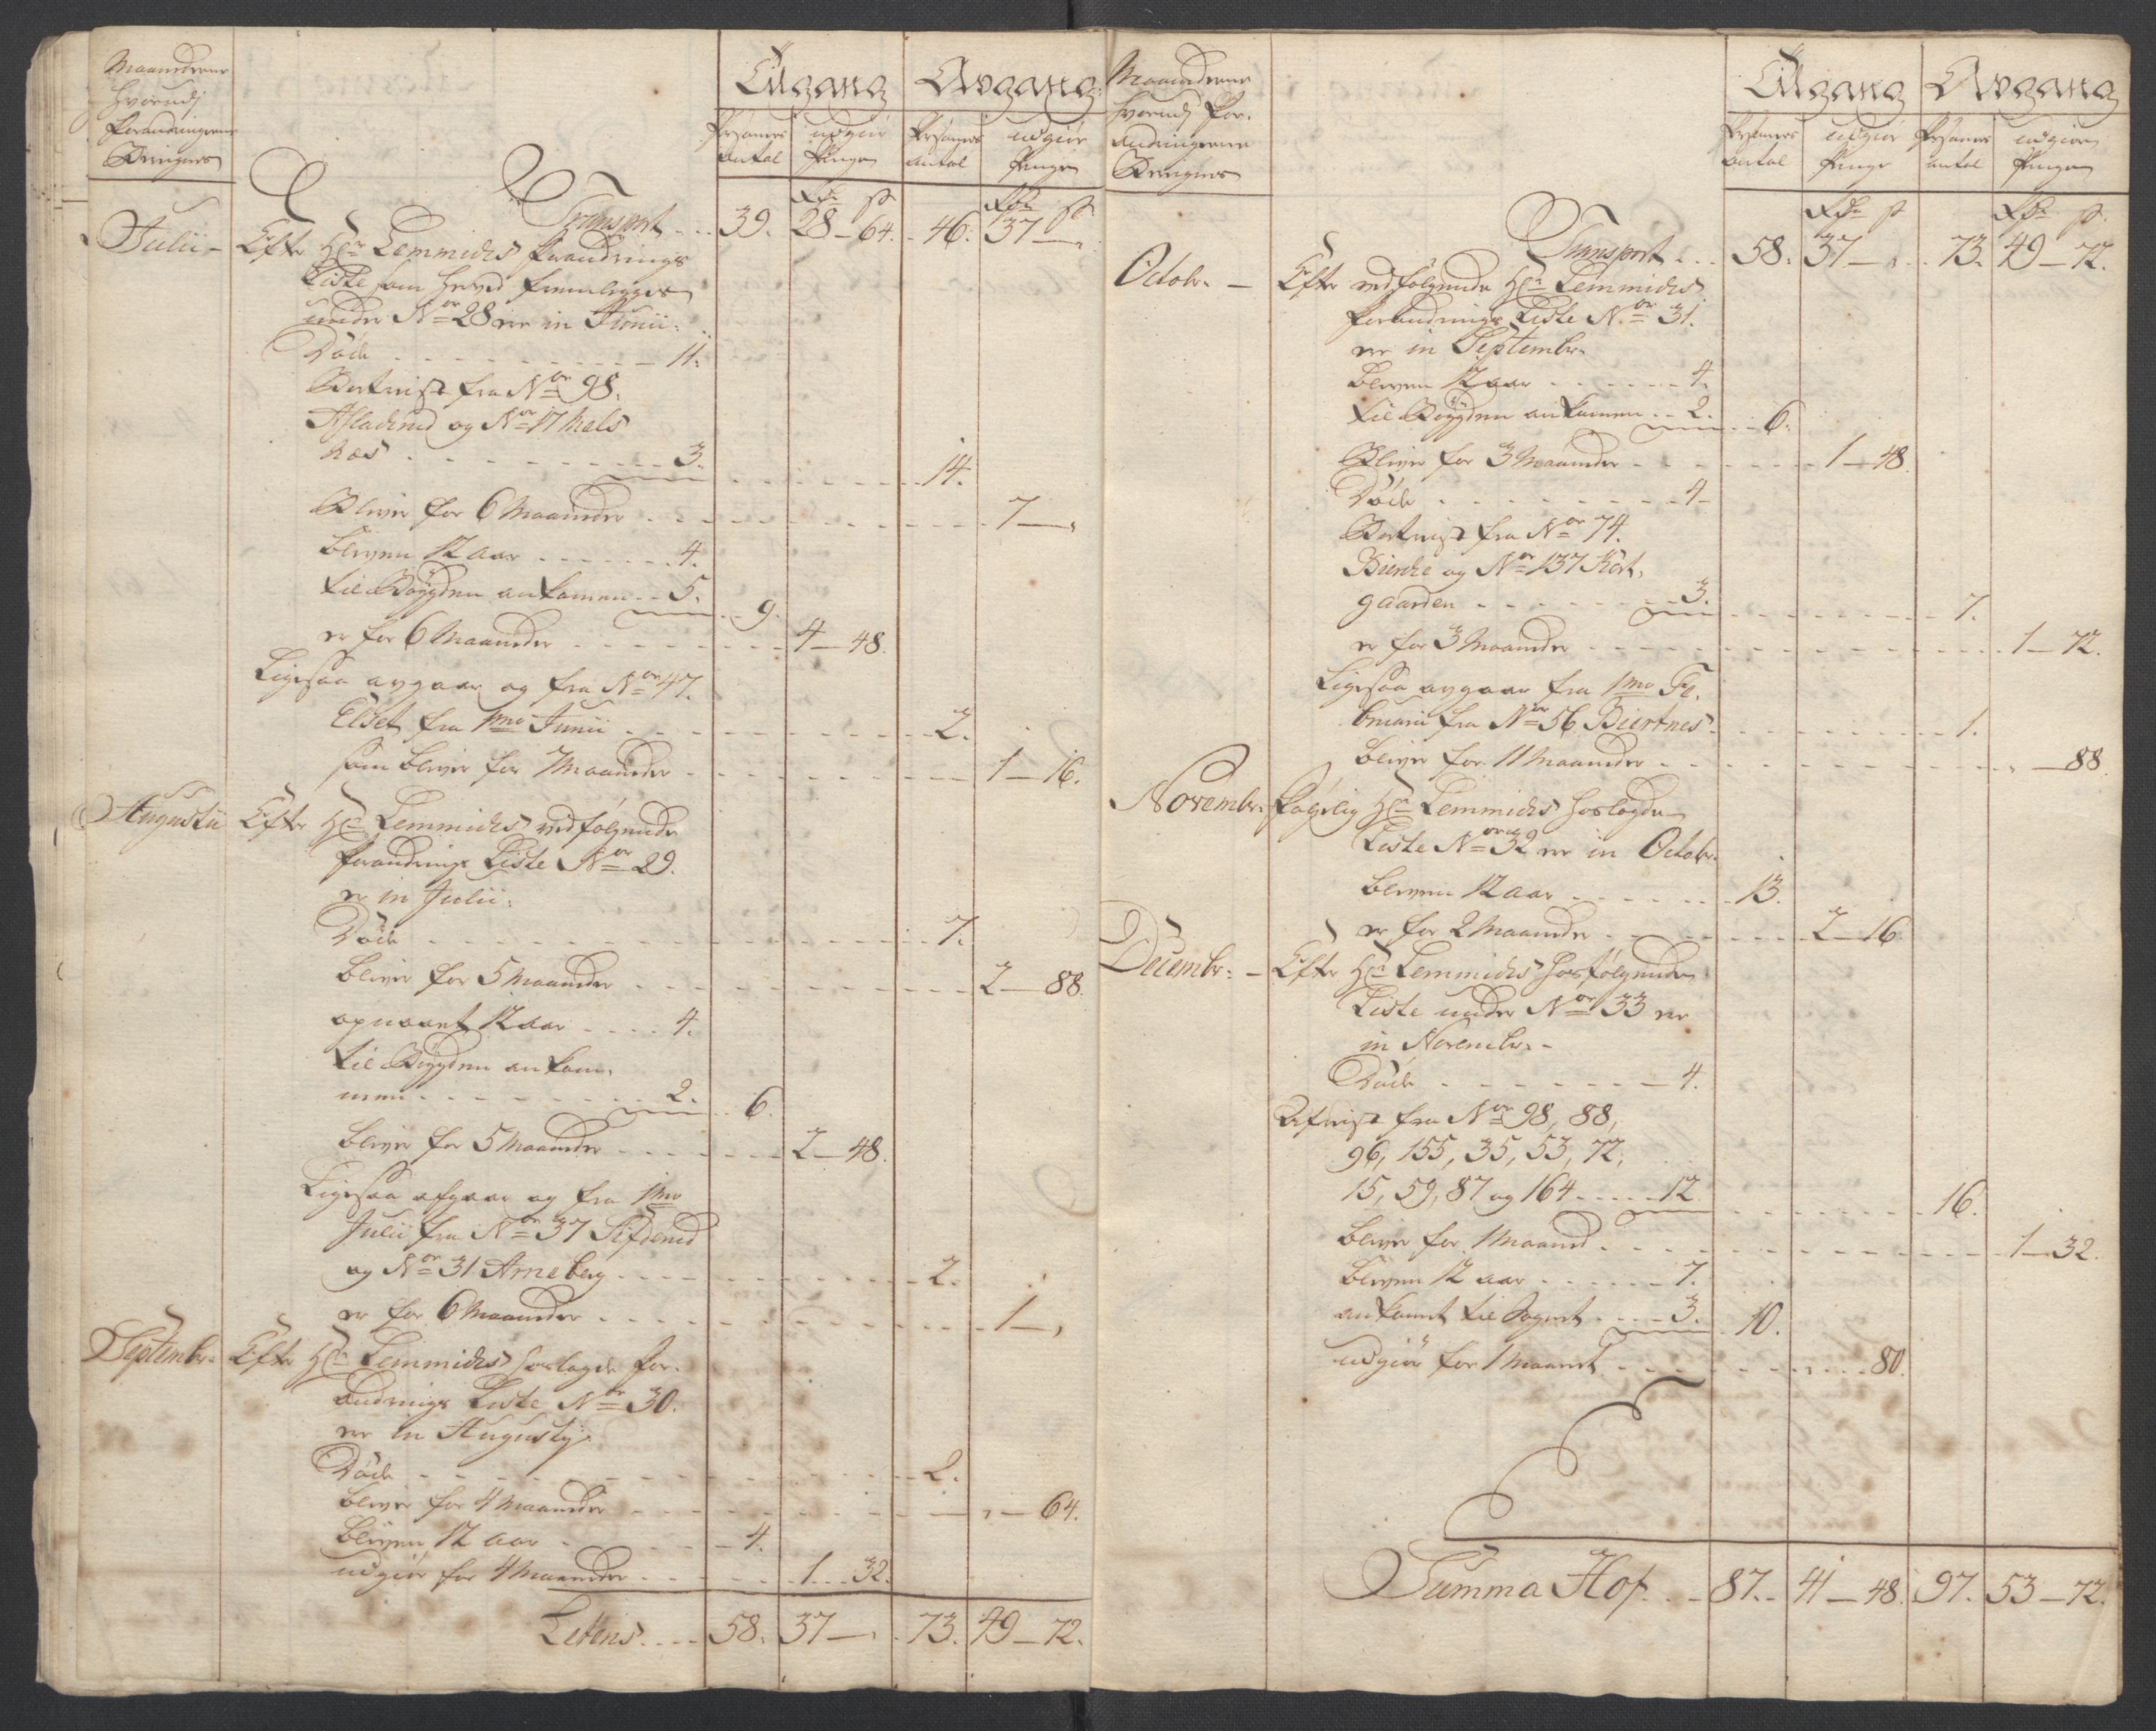 Maanederne
hvorudj
Forandringerne
Beregnes
Tilgang
Avgang
Persohners Antal
udgiør Penge
Persohners antal
udgiør Penge
Rdr ß
Rdr ß
Transport . . 39. 28 – 64. 46. 37 – „
Julii – Efter Hr Lemmichs Forandrings
Liste som herved fremlegges
under No 28 ere in Junii:
Døde . . . . 11.
Bortreist fra No 98.
Afladerud og No 17 Mels
Næs . . . . 3. . . . 14.
Bliver for 6 Maaneder . . . . 7 – „
bleven 12 aar . . . . 4.
til Bøygden ankomen . . 5. . . 9.
er for 6 Maaneder . . . . 4 – 48.
Ligesaa avgaar og fra No 47.
Elset fra 1mo Junii . . . . 2.
som bliver for 7 Maaneder . . . . 1 – 16.
Augustii Efter Hr Lemmichs vedfølgende
Forandrings Liste No 29.
er in Julii:
Døde . . . . 7.
bliver for 5 Maaneder . . . . 2 – 88.
opnaaet 12 aar . . . . 4.
til Bøygden ankom-
men . . . . 2. . . 6.
bliver for 5 Maaneder . . . . 2 – 48.
Ligesaa afgaar og fra 1mo
Julii fra No 37
og No 31 Arneberg . . . . 2.
er for 6 Maaneder . . . . 1 – „
Septembr. Efter Hr Lemmichs hoslagde For-
andrings Liste No 30.
ere in Augustij
Døde . . . . 2.
bliver for 4 Maaneder . . . . „ – 64.
bleven 12 aar . . . . 4.
udgiør for 4 Maaneder . . . . 1 – 32.
Lateris . . . . 58. 37 – „ 73. 49 – 72.
Maanederne
hvorudj For-
andringerne
Beregnes
Tilgang
Avgang
Persohners antal
udgiør Penge
Persohners antal
udgiør Penge
Rdr ß
Rdr ß
Transport . . . 58. 37 – „ 73. 49 – 72.
Octobr. – Efter vedfølgende Hr Lemmichs
Forandrings Liste No 31.
ere in Septembr.
bleven 12 aar . . . . 4.
til Bøygden ankomen . . 2. . . 6.
Bliver for 3 Maaneder . . . . 1 – 48.
Døde . . . . 4
Bortreist fra No 74.
Bierche og No 137 Kort-
gaarden . . . . 3. . . . 7.
er for 3 Maaneder . . . . 1 – 72.
Ligesaa avgaar fra 1mo Fe-
bruarii fra No 56 Biertnes . . . . 1.
bliver for 11 Maaneder . . . . „ – 88.
Novembr. Følgelig Hr Lemmichs hoslagde
Liste No 32 ere in Octobr.
bleven 12 aar . . . . 13.
er for 2 Maaneder . . . . 2 – 16
Decembr. – Efter Hr Lemmichs hosfølgende
Liste under No 33 ere
in Novembr. –
Døde . . . . 4.
Afreist fra No 98, 88,
96, 155, 35, 53, 72,
15, 59, 87 og 164 . . . . 12. . . . 16.
bliver for 1 Maaned . . . . 1 – 32.
bleven 12 aar . . . . 7.
ankomet til Sognet . . . 3. . . 10.
udgiør for 1 Maanet . . . . 80.
Summa Hof . . 87. 41 – 48. 97. 53 – 72.